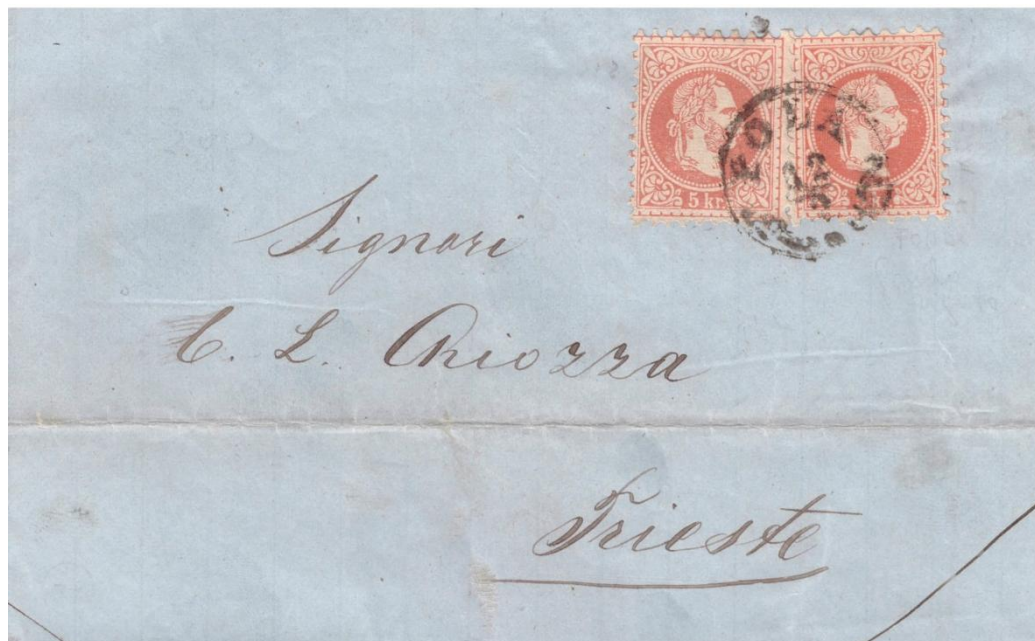 5 kr
POLA
Signori
C. L. Chiozza
Trieste